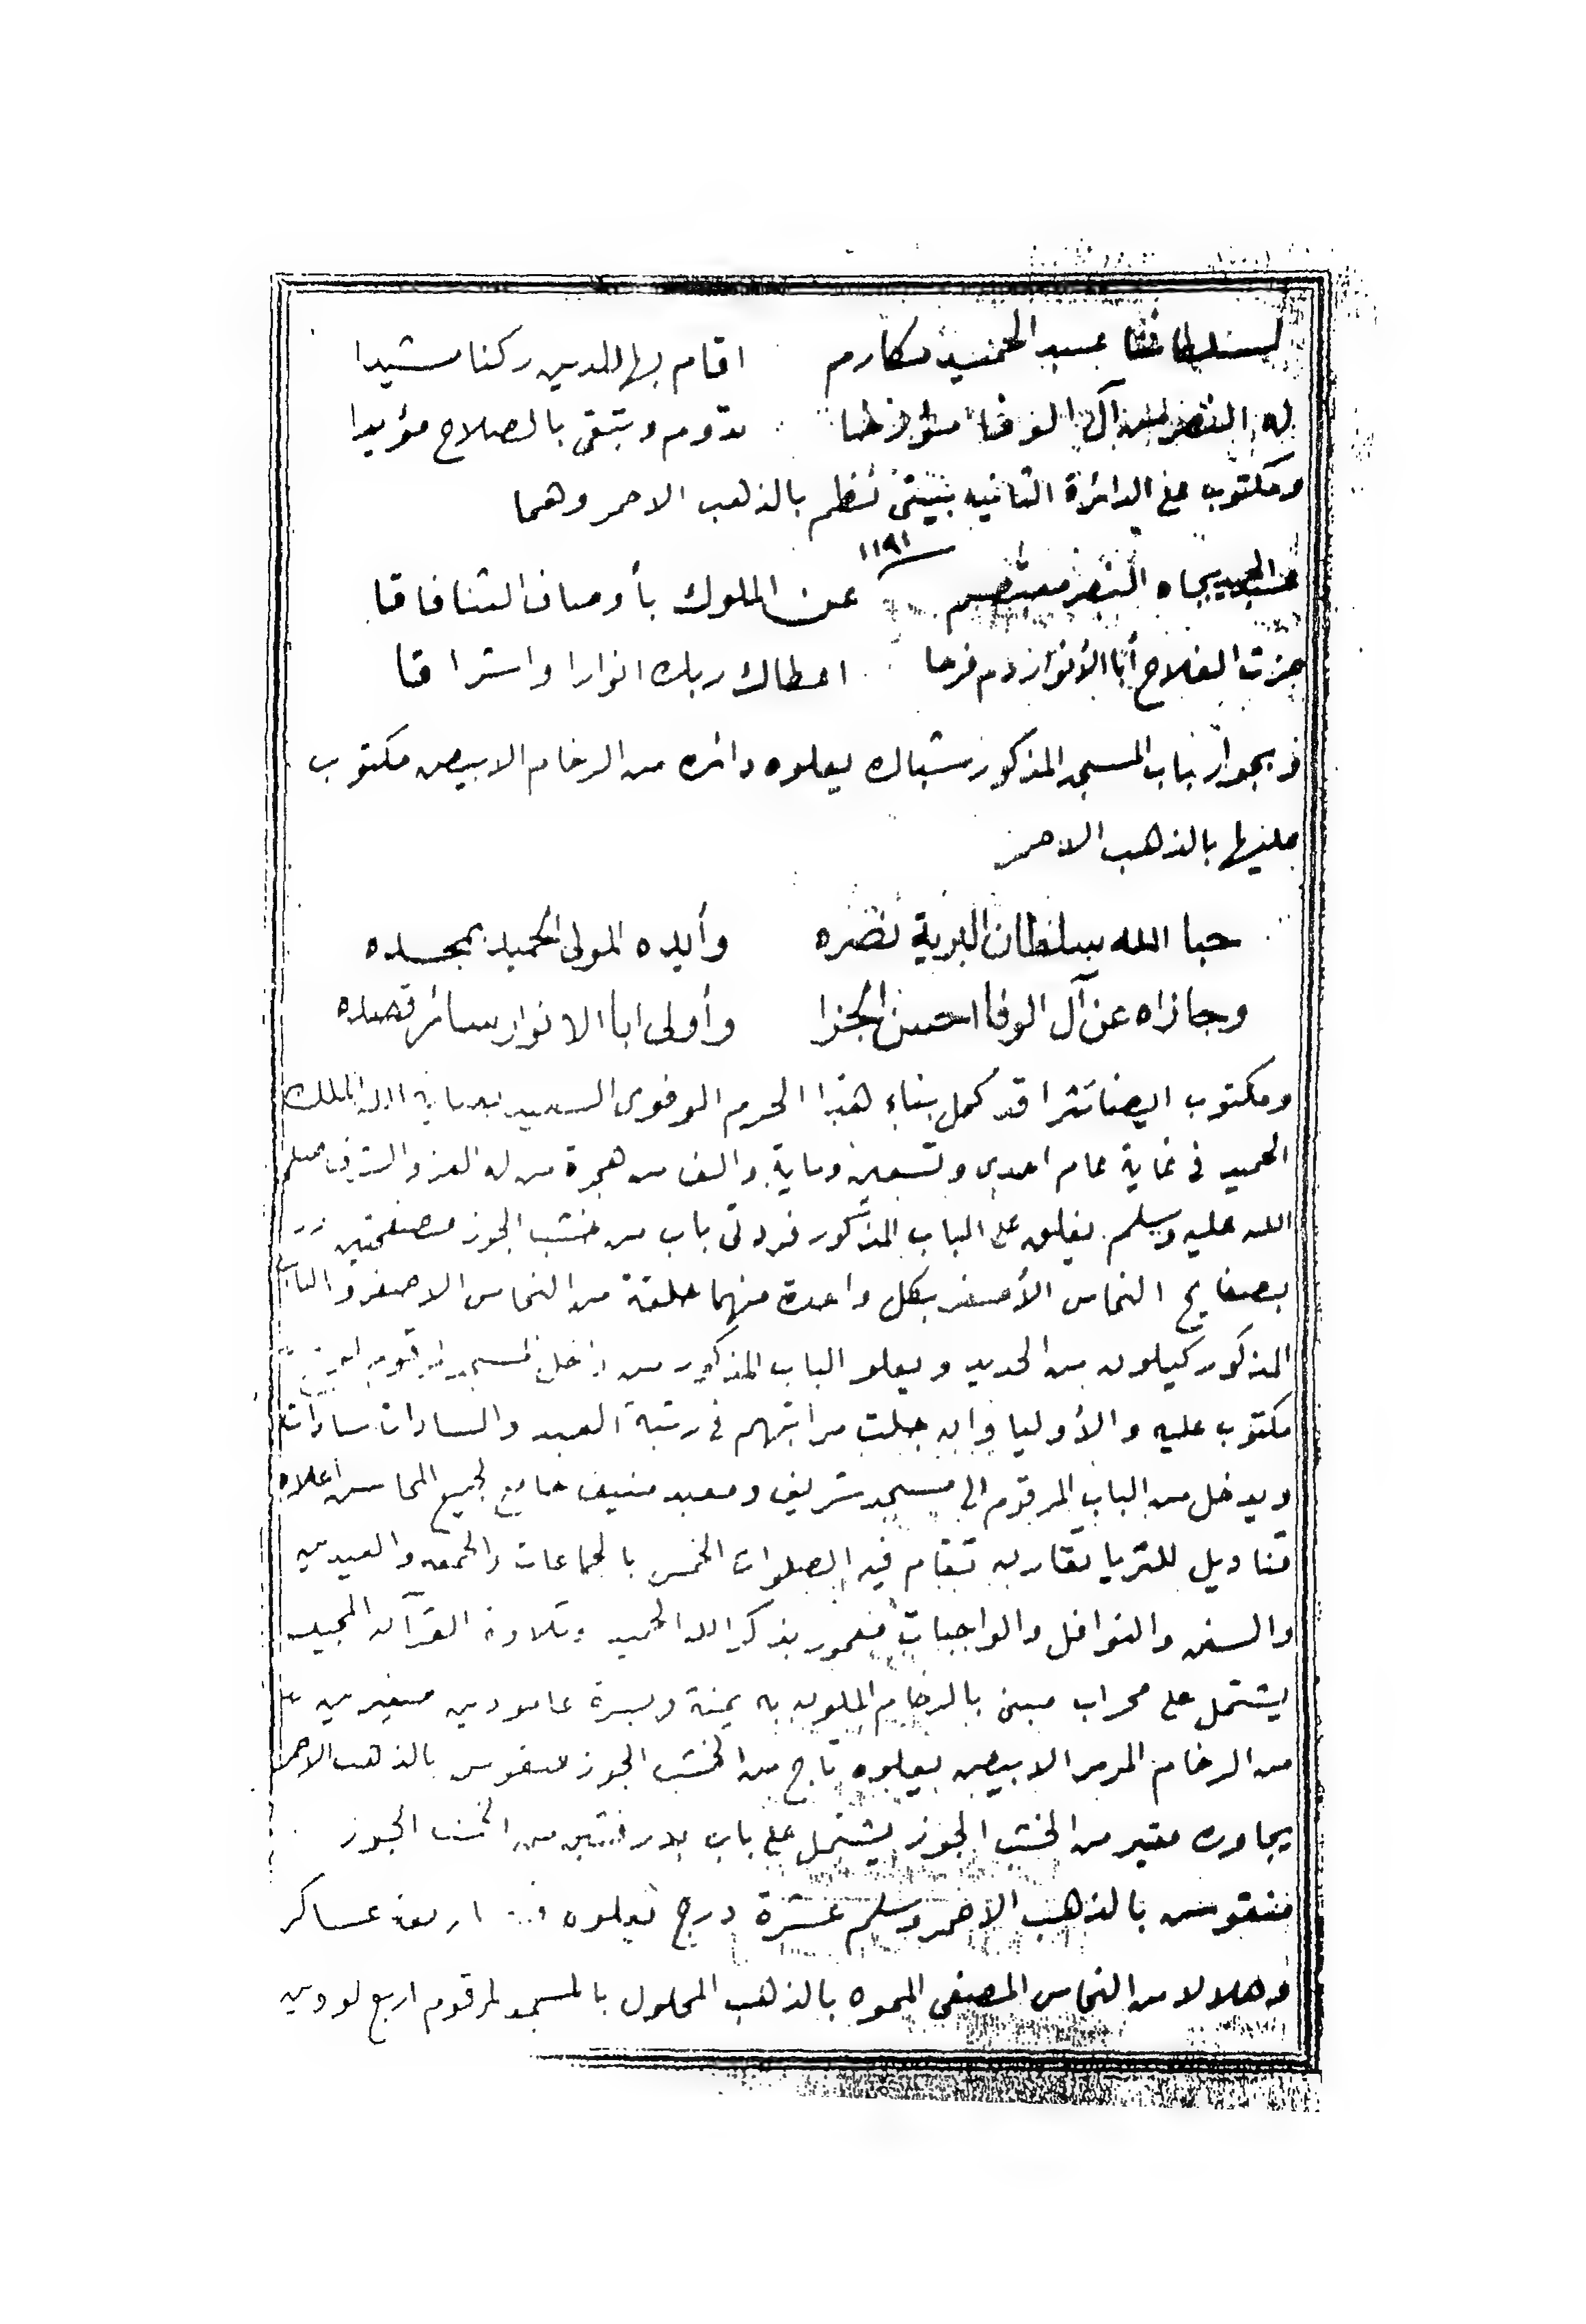 لسلطاننا عبد الحميد مكارم اقام بها للدين ركنا مشيدا
له النصر من آل الوفا مؤرخا تدوم وتبقى بالصلاح مؤيدا
ومكتوب على الدائرة الثانيه ببيتى نظم بالذهب الاحمر وهما
١١٩١
عبد الحميد بجاه النصر معتصم عن الملوك بأوصاف الثنا فاقا
حزت الفلاح أبا الأنوار دم فرحا اعطاك ربك انوارا واشراقا
وبجوار باب المسجد المذكور شباك يعلوه دائره من الرخام الابيض مكتوب
عليها بالذهب الاحمر
حبا الله سلطان البرية نصره وأيده المولى الحميد بمجده
وجازاه عن آل الوفا احسن الجزا وأولى ابا الانوار سائر قصده
ومكتوب ايضا نثرا قد كمل بناء هذا الحرم الوفوى السعيد الله الملك
الحميد فى غاية عام احدى وتسعين وماية والف من هجرة من له العز والشرف صلى
الله عليه وسلم يغلق على الباب المذكور فردتى باب من خشب الجوز مصفحتين
بصفايح النحاس الأصفر بكل واحدة منهما حلقة من النحاس الاصفر والباب
المذكور كيلون من الحديد ويعلو الباب المذكور من داخل المسجد
مكتوب عليه والأوليا وان جلت مراتبهم فى رتبة العبد والسادات سادات
ويدخل من الباب المرقوم الى مسجد شريف ومعبد منيف جامع لجميع المحاسن اعلاه
قناديل للثريا تقارن تقام فيه الصلوات الخمس بالجماعات والجمعه والعيدين
والسنن والنوافل والواجبات معمور بذكر الله الحميد وتلاوة القرآن المجيد
يشتمل على محراب مبنى بالرخام الملون به يمنة ويسرة عامودين صغيرين
من الرخام المرمر الابيض يعلوه تاج من الخشب الجوز منقوس بالذهب الاحمر
يجاوره منبر من الخشب الجوز يشتمل على باب بدرفتين من الخشب الجوز
منقوس بالذهب الاحمر وسلم عشرة درج يعلوه اربعة عساكر
وهلالا من النحاس المصفى المموه بالذهب المحلول بالمسجد المرقوم اربع لووين